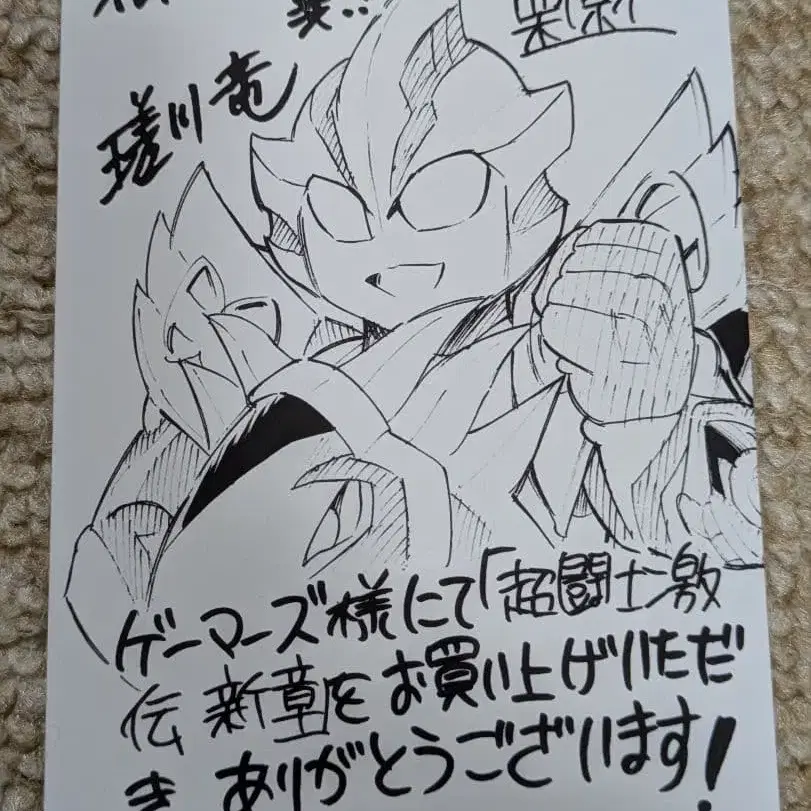 瑳川竜
ゲーマーズ様にて「超闘士激
伝 新章」をお買い上げいただ
き ありがとうございます!